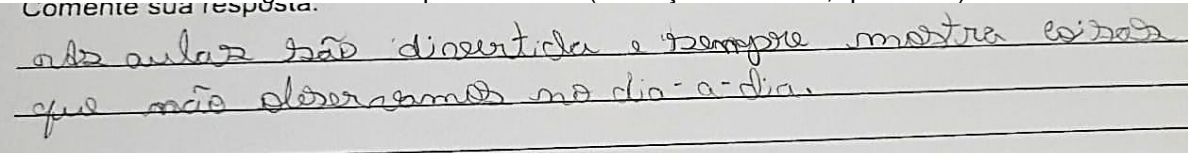 Comente sua resposta.
as aulas são divertida e sempre mostra coisas
que não observamos no dia-a-dia.